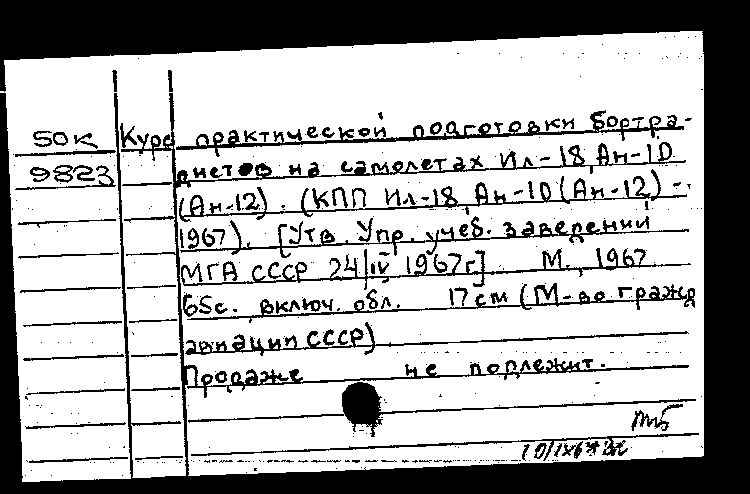 50к Курс практической подготовки бортра-
9823 дистов на самолетах Ил-18, Ан-10
(Ан-12). (КПП Ил-18, Ан-10 (Ан-12) -
1967). [Утв. Упр. учеб. заведений
МГА СССР 24/IV 1967г.] М., 1967
65с. включ. обл. 17 см (М-во гражд
авиации СССР)
Продаже не подлежит.